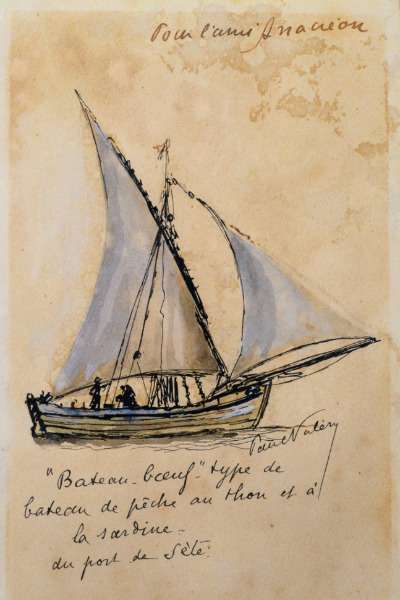 Pour l'ami Anacréon
Paul Valéry
"Bateau-bœuf" type de
bateau de pêche au thon et à
la sardine -
du port de Sète.